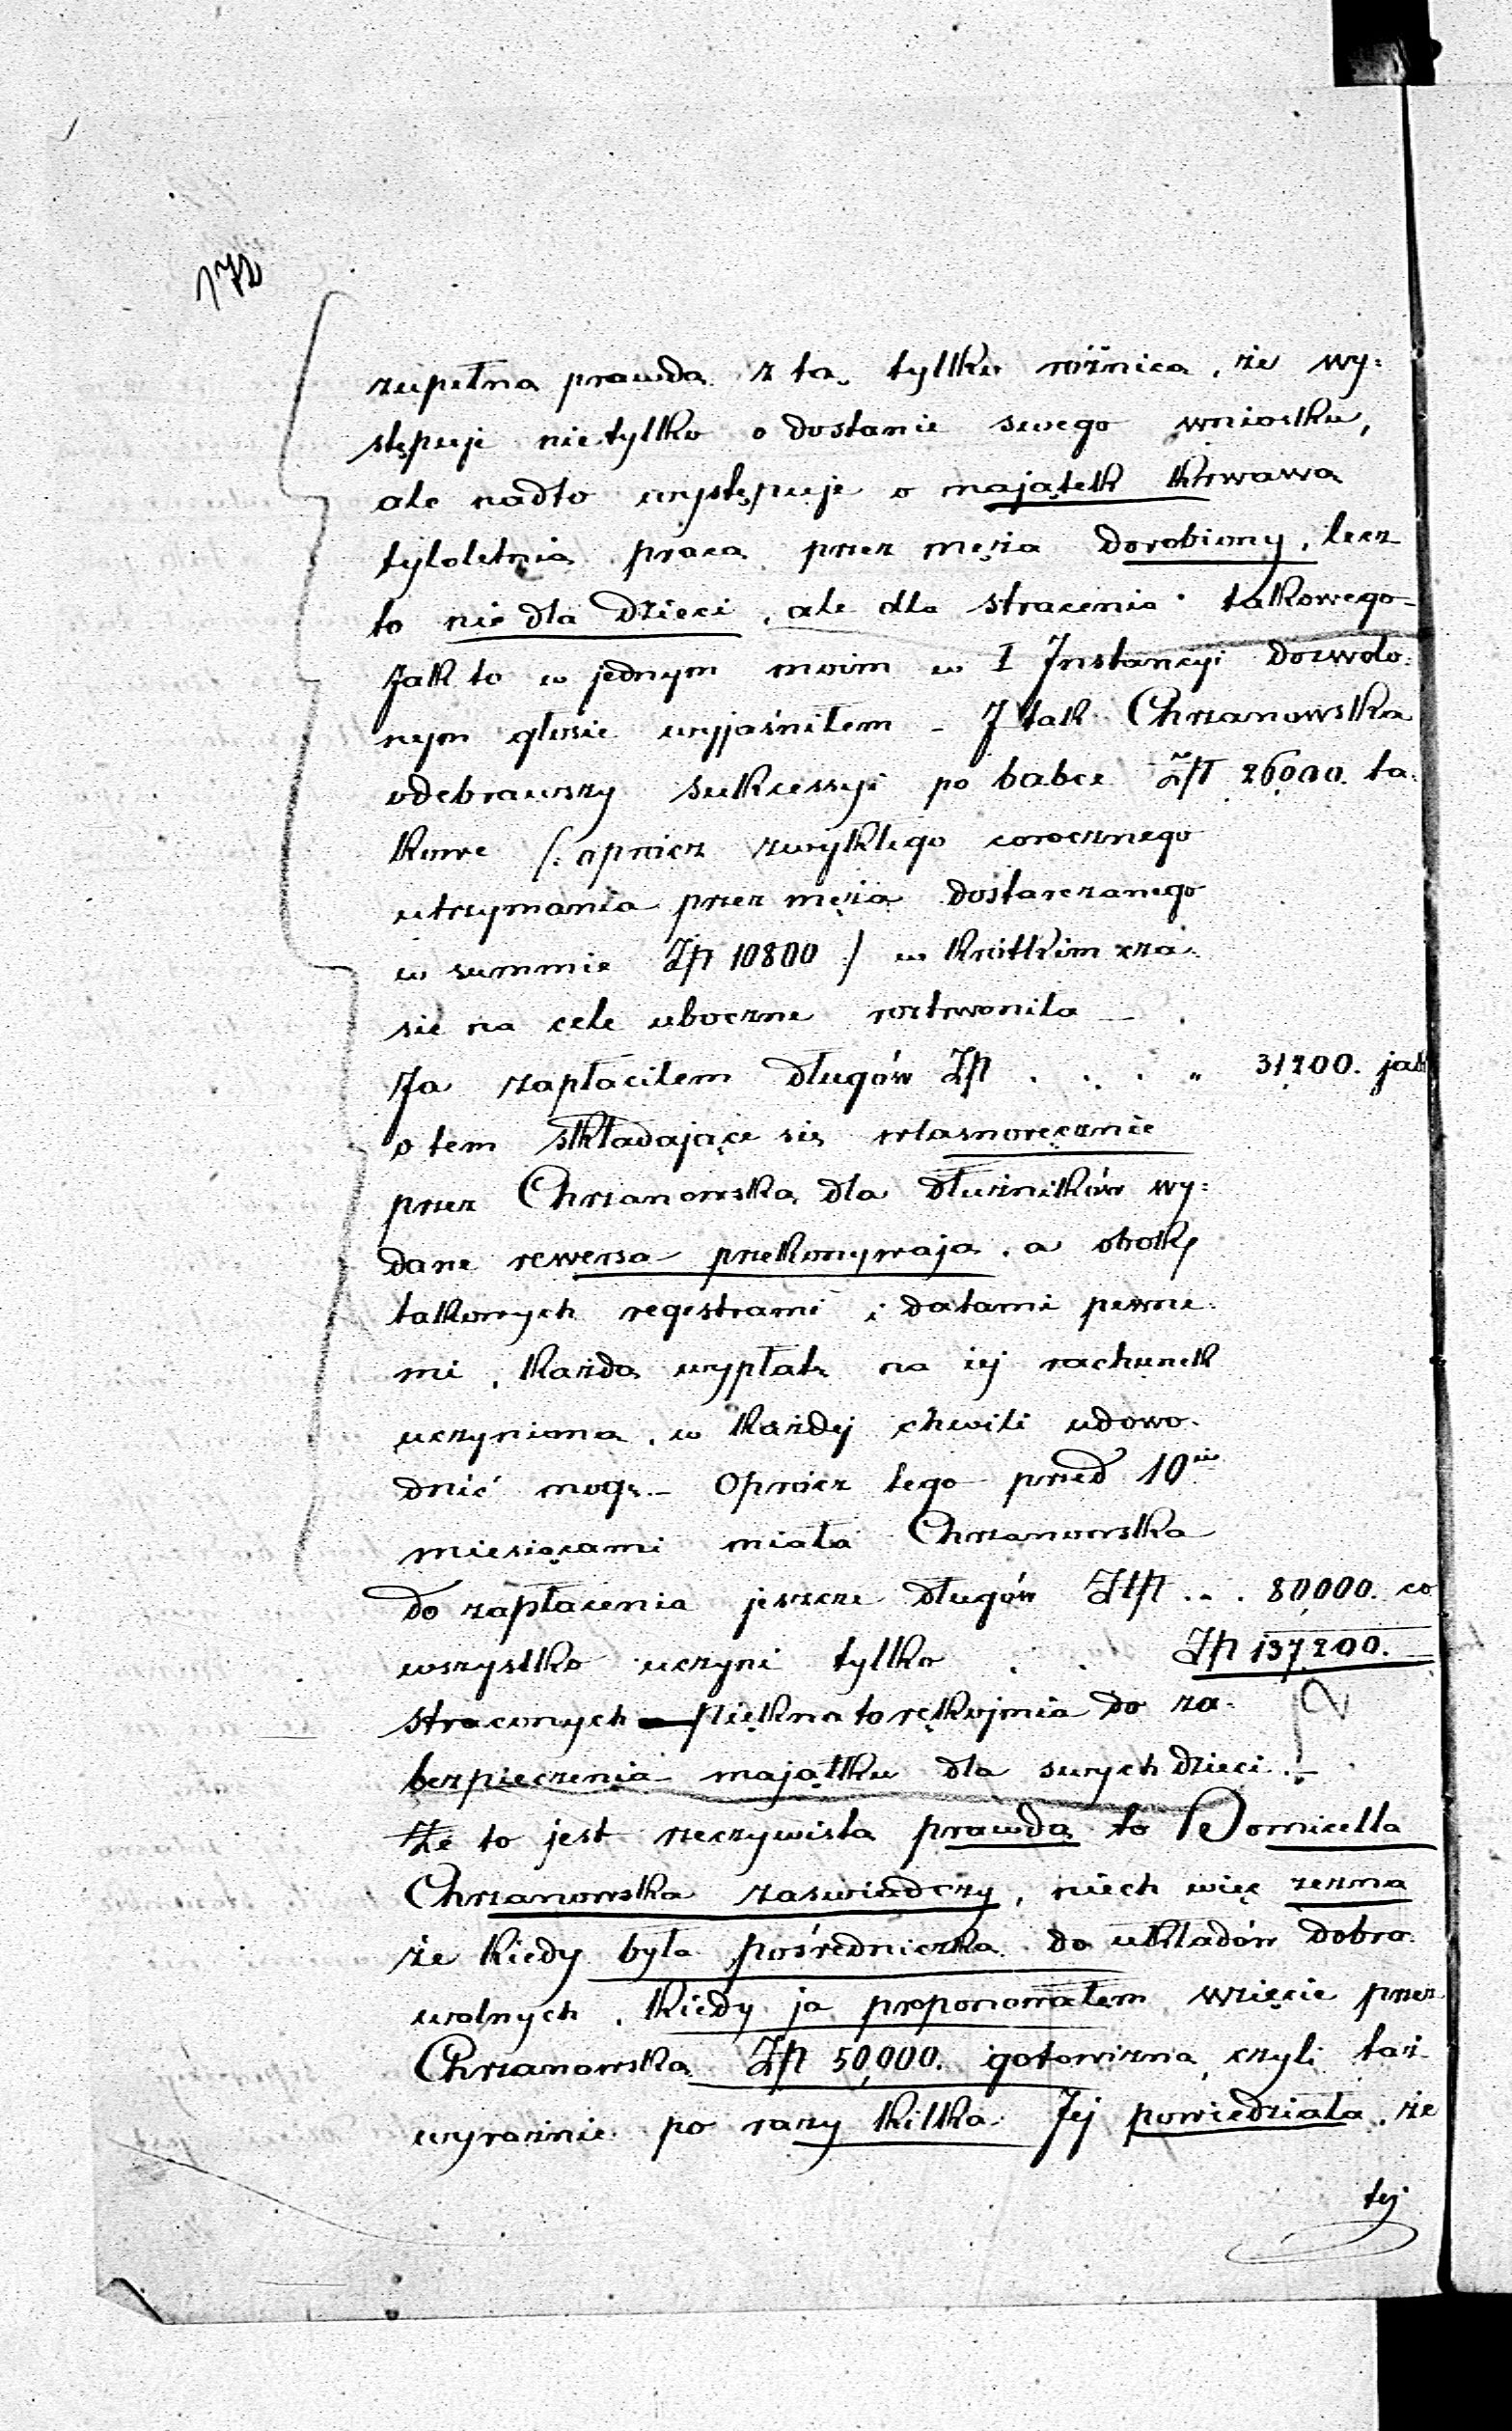 172
zupełna prawda z tą tylko różnicą, że wy:
stępuje nie tylko o dostanie swego wniosku,
ale nadto występuje o majątek krwawą
tyloletnią pracą przez męża dorobiony, lecz
to nie dla dzieci, ale dla stracenia takowego
Jak to w jednym moim w I Instancyi dozwolo:
nym głosie wyjaśniłem – I tak Chrzanowska
odebrawszy sukcessyi po babce Złp 26,000. ta:
kowe /: oprócz zwykłego corocznego
utrzymania przez męża dostarczanego
w summie Złp 10800 :/ w krótkim cza:
sie na cele uboczne roztrwoniła –
Ja zapłaciłem długów Złp . . . „ 31,200. jak
o tem składające się własnoręcznie
przez Chrzanowską dla dłużników wy:
dane rewersa przekonywają, a obok
takowych regestrami i datami pewne:
mi, każdą wypłatę na jej rachunek
uczynioną, w każdej chwili udowo:
dnić mogę. – Oprócz tego przed 10iu
miesiącami miała Chrzanowska
do zapłacenia jeszcze długów Złp . . . 80,000. co
wszystko uczyni tylko . . Złp 137,200. –
straconych – piękna to rękojmia do za:
bezpieczenia majątku dla swych dzieci. –
Że to jest rzeczywista prawda to Domicella
Chrzanowska zaświadczy, niech więc zezna
że kiedy była pośredniczką do układów dobro:
wolnych, kiedy ja proponowałem wzięcie przez
Chrzanowską Złp 50,000. gotowizną, czyli taż
wyraźnie po razy kilka Jej powiedziała, że
tej